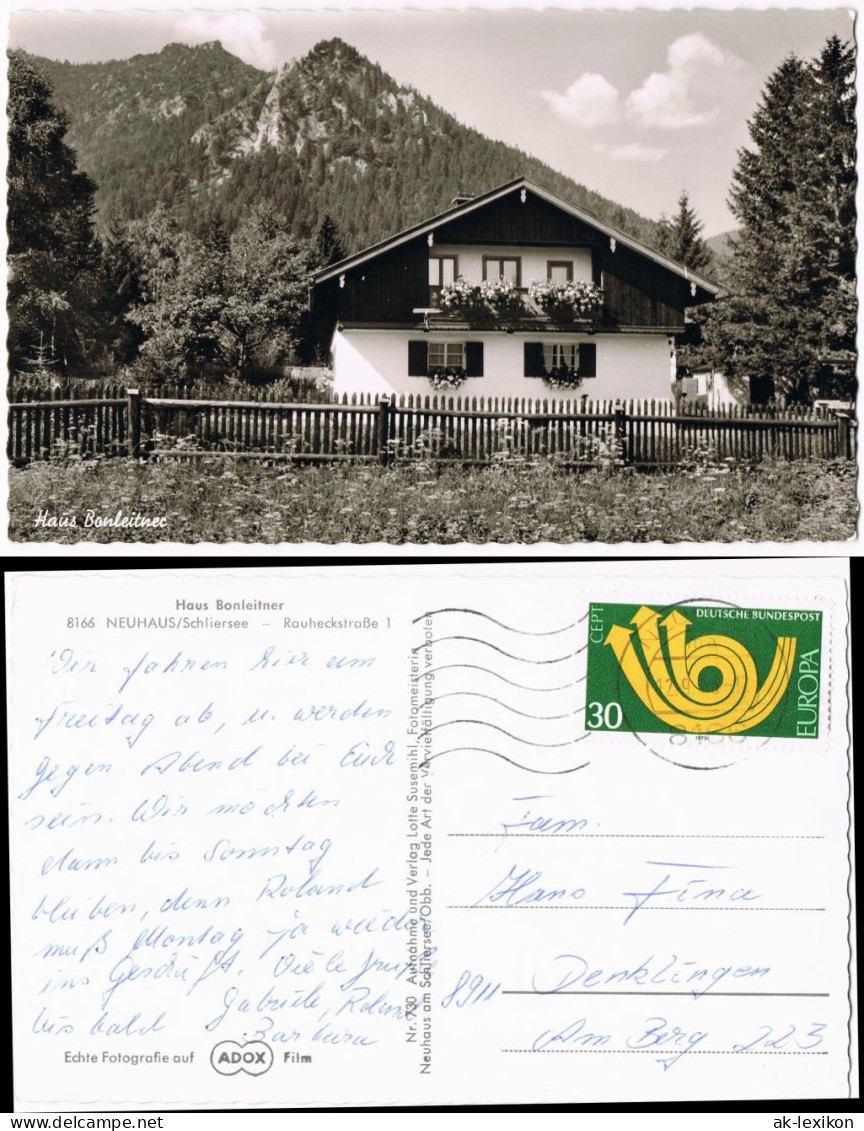 Haus Bonleitner
Haus Bonleitner
8166 NEUHAUS/Schliersee – Rauheckstraße 1
Wir fahren hier am
Freitag ab, u. werden
gegen Abend bei Euch
sein. Wir möchten
dann bis Sonntag
bleiben, denn Roland
muß Montag ja wieder
ins Geschäft. Viele Grüße
bis bald Gabriele, Roland
Barbara
Echte Fotografie auf ADOX Film
Nr. 730 Aufnahme und Verlag Lotte Susemihl, Fotomeisterin
Neuhaus am Schliersee/Obb. – Jede Art der Vervielfältigung verboten
CEPT
DEUTSCHE BUNDESPOST
EUROPA
30
Fam.
Hans Fina
8911 Denklingen
Am Berg 223
www.ansichtskarten-lexikon.de
ak-lexikon